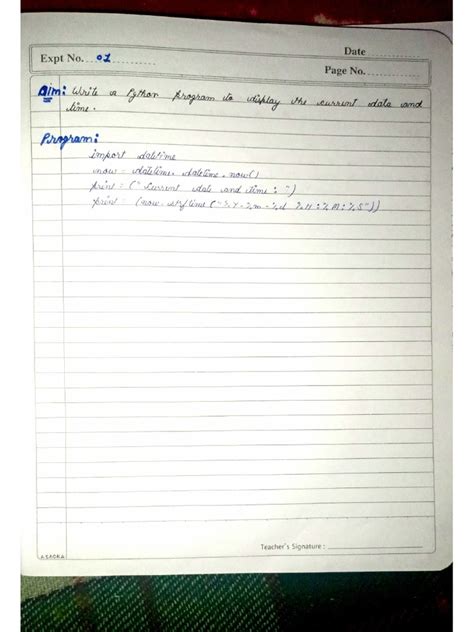 Date
Expt No. 01
Page No.
Aim: Write a Python program to display the current data and
time.
Program:
import datetime
now = datetime. datetime. now()
print : ("Current date and time : ")
print : (now. strftime ("%Y-%m-%d %H:%M:%S"))
Teacher's Signature :